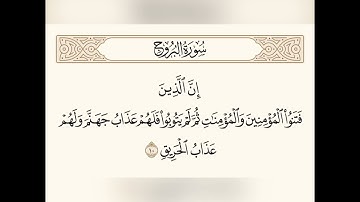 سُورَةُ البُرُوجِ
إِنَّ ٱلَّذِينَ
فَتَنُوا۟ ٱلْمُؤْمِنِينَ وَٱلْمُؤْمِنَٰتِ ثُمَّ لَمْ يَتُوبُوا۟ فَلَهُمْ عَذَابُ جَهَنَّمَ وَلَهُمْ
عَذَابُ ٱلْحَرِيقِ ١٠